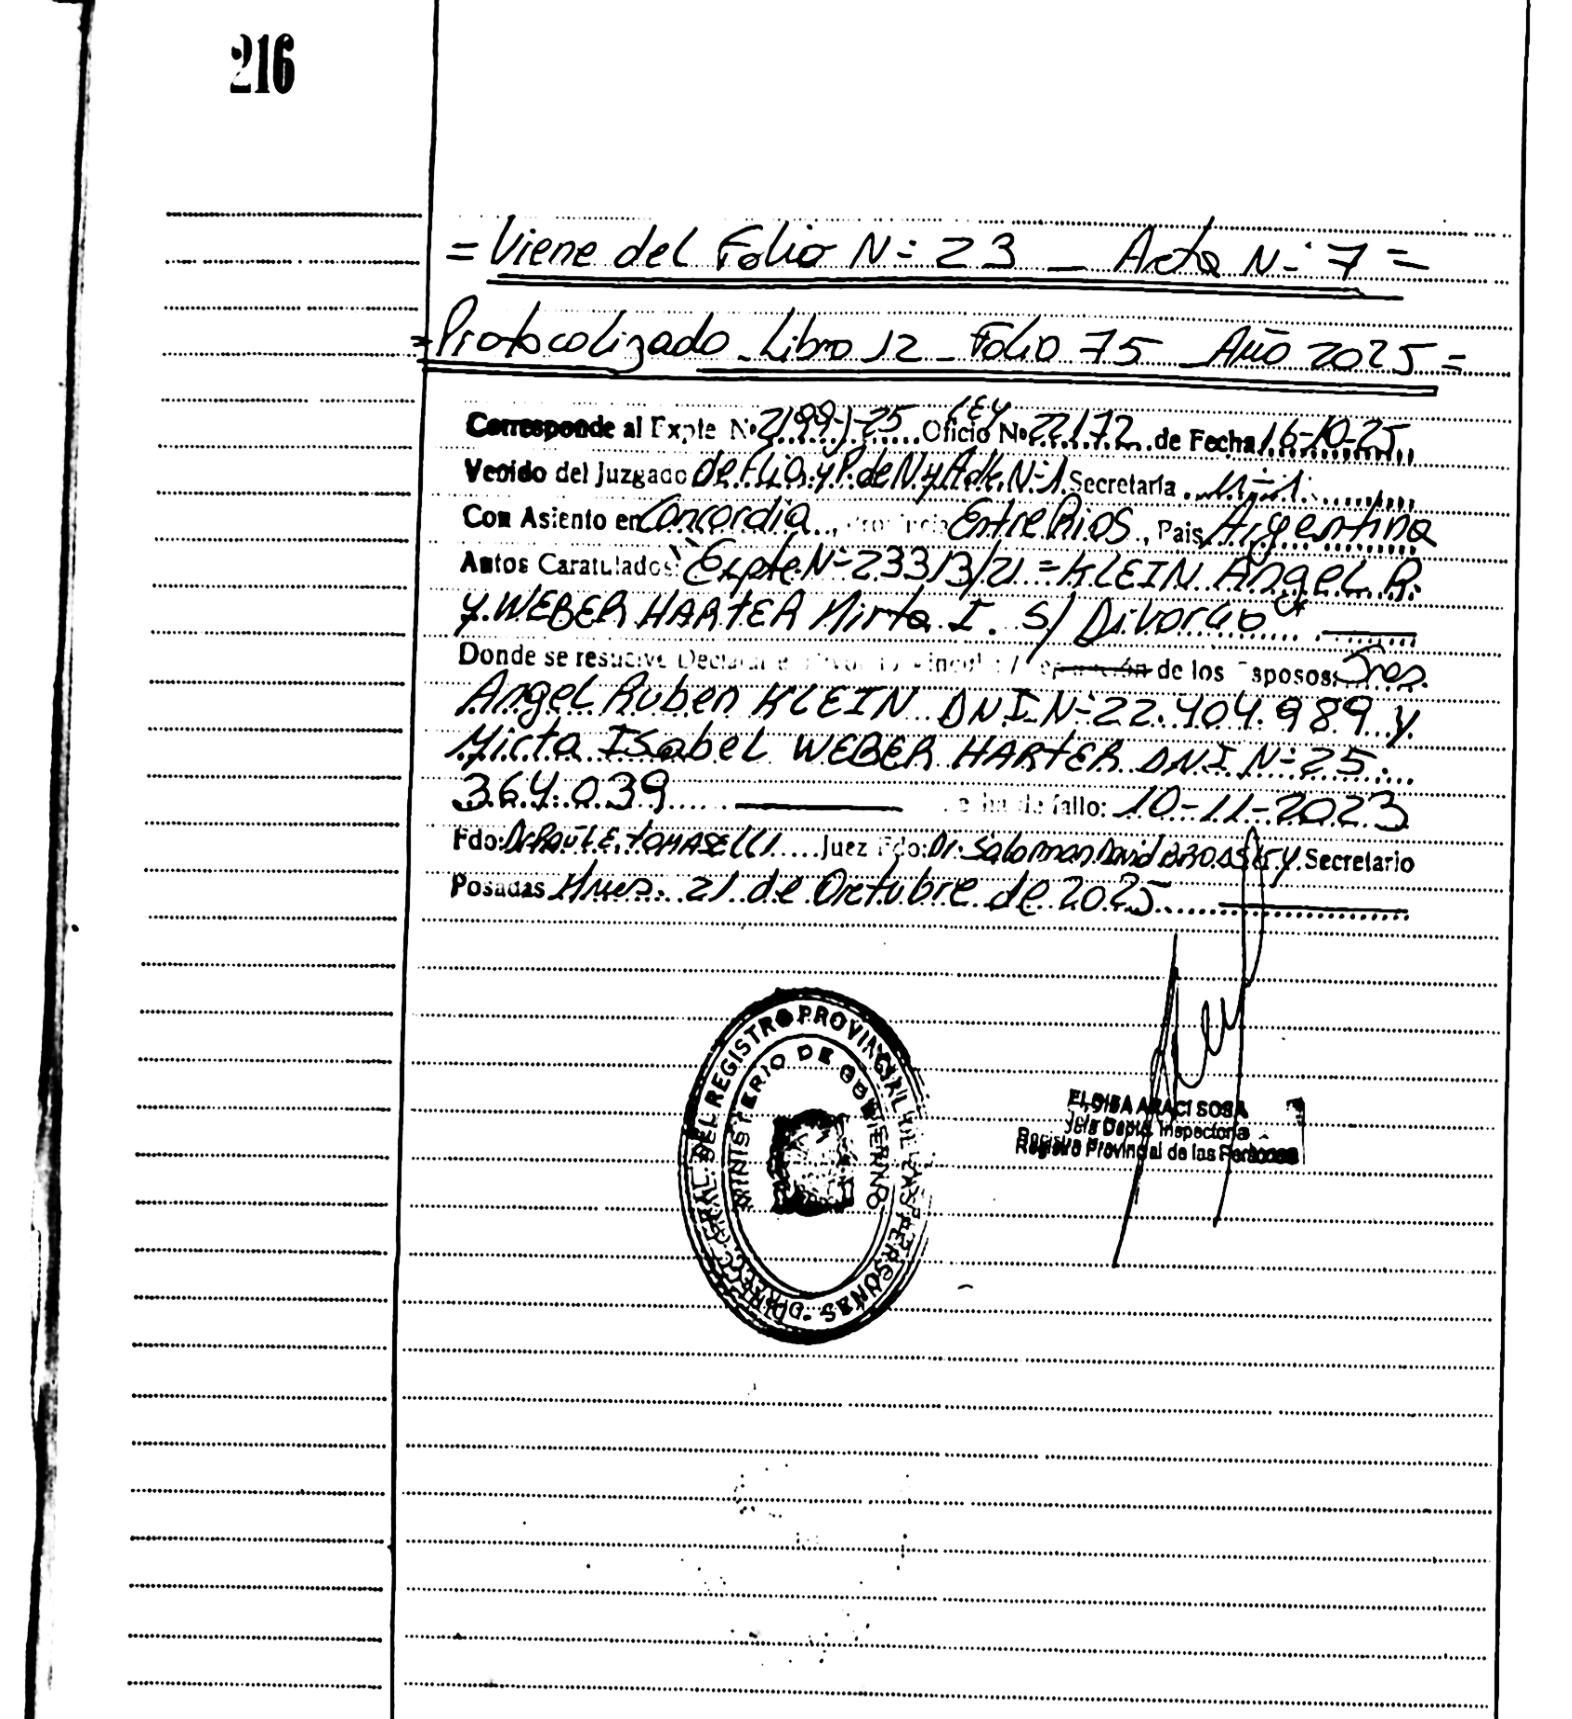 216
= Viene del Folio N° 23 _ Acta N° 7 =
= Protocolizado _ Libro 12 _ Folio 75 _ Año 2025 =
Corresponde al Expte Nº 2199-J-25 Oficio LEY Nº 22172 de Fecha 16-10-25
Venido del Juzgado de Flia. y P. de N. y Adt. N° 1 Secretaría N° 1
Con Asiento en Concordia, Provincia Entre Rios, Pais Argentina
Autos Caratulados: "Expte N° 23313/21 = KLEIN Angel R.
y WEBER HARTER Mirta I. s/ Divorcio"
Donde se resuelve Declarar el Divorcio Vincular / Separación de los Esposos: Sres.
Angel Ruben KLEIN DNI N° 22.404.989 y
Mirta Isabel WEBER HARTER DNI N° 25.
364.039 Fecha de fallo: 10-11-2023
Fdo: Dr RAUL E. TOMASELLI Juez Fdo: Dr. Saloman David Secretario
Posadas Mnes. 21 de Octubre de 2025
DIRECC. GRAL. DEL REGISTRO PROVINCIAL DE LAS PERSONAS
MINISTERIO DE GOBIERNO
ELOISA ARACI SOSA
Jefa Depto. Inspectoria
Registro Provincial de las Personas